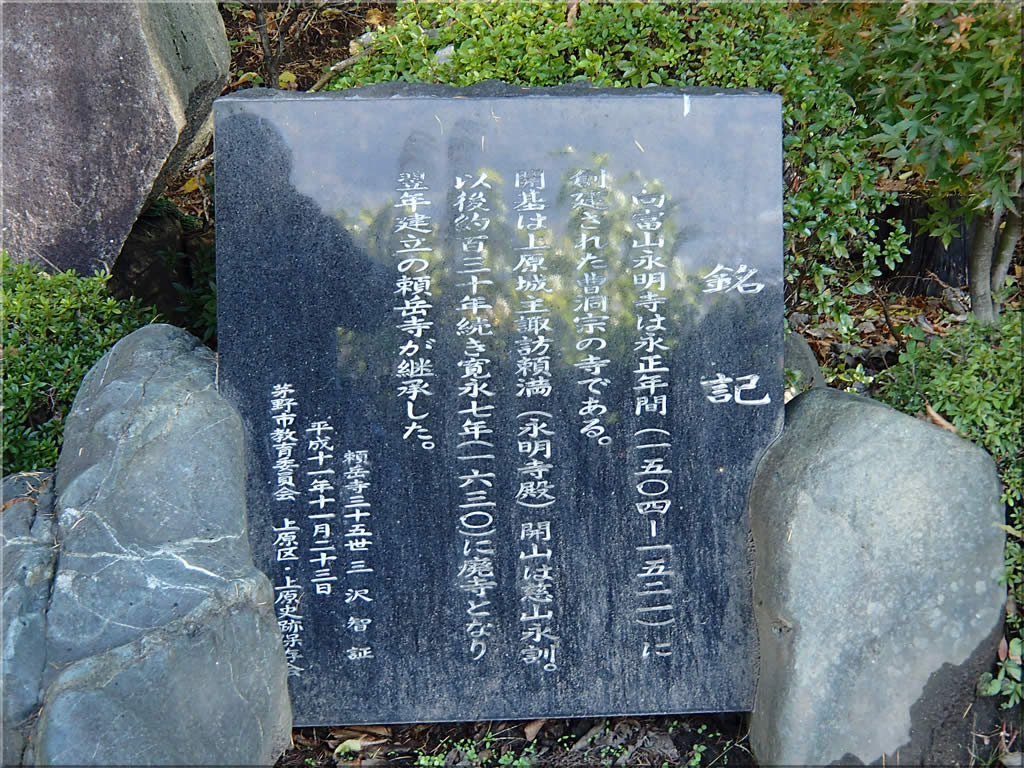 銘記
向富山永明寺は永正年間（一五〇四ー一五二一）に
創建された曹洞宗の寺である。
開基は上原城主諏訪頼満（永明寺殿）開山は慈山永訓。
以後約百三十年続き寛永七年（一六三〇）に廃寺となり
翌年建立の頼岳寺が継承した。
頼岳寺三十五世三沢智証
平成十一年十一月二十三日
茅野市教育委員会　上原区・上原史跡保存会